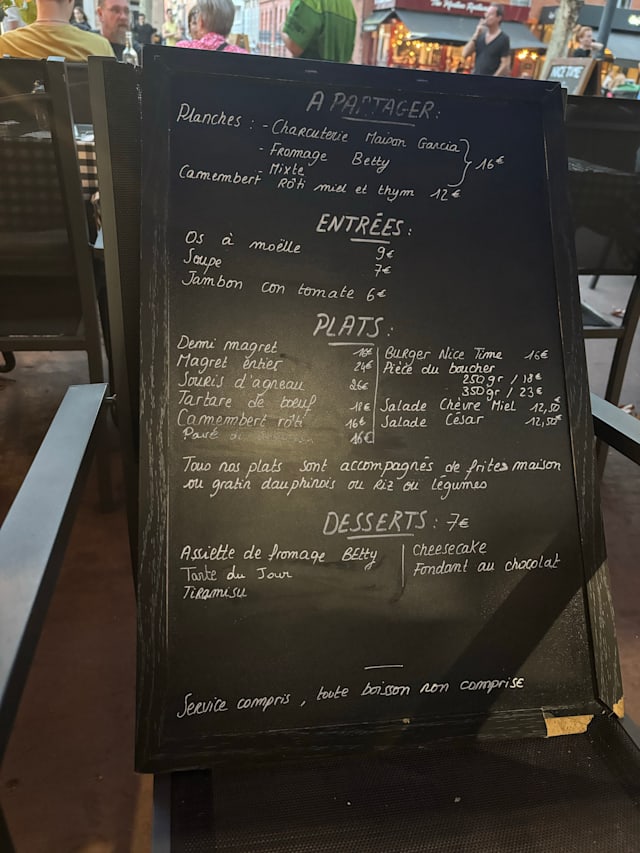 A PARTAGER:
Planches : - Charcuterie Maison Garcia
- Fromage Betty
- Mixte
16€
Camembert Rôti miel et thym 12€
ENTRÉES:
Os à moëlle 9€
Soupe 7€
Jambon con tomate 6€
PLATS:
Demi magret
Magret entier 24€
Souris d'agneau 26€
Tartare de boeuf 18€
Camembert rôti 16€
16€
Burger Nice Time 16€
Pièce du boucher
250gr / 18€
350gr / 23€
Salade Chèvre Miel 12,50€
Salade César 12,50€
Tous nos plats sont accompagnés de frites maison
ou gratin dauphinois ou Riz ou légumes
DESSERTS: 7€
Assiette de fromage BEtty
Tarte du Jour
Tiramisu
Cheesecake
Fondant au chocolat
Service compris, toute boisson non comprise
NICE TIME